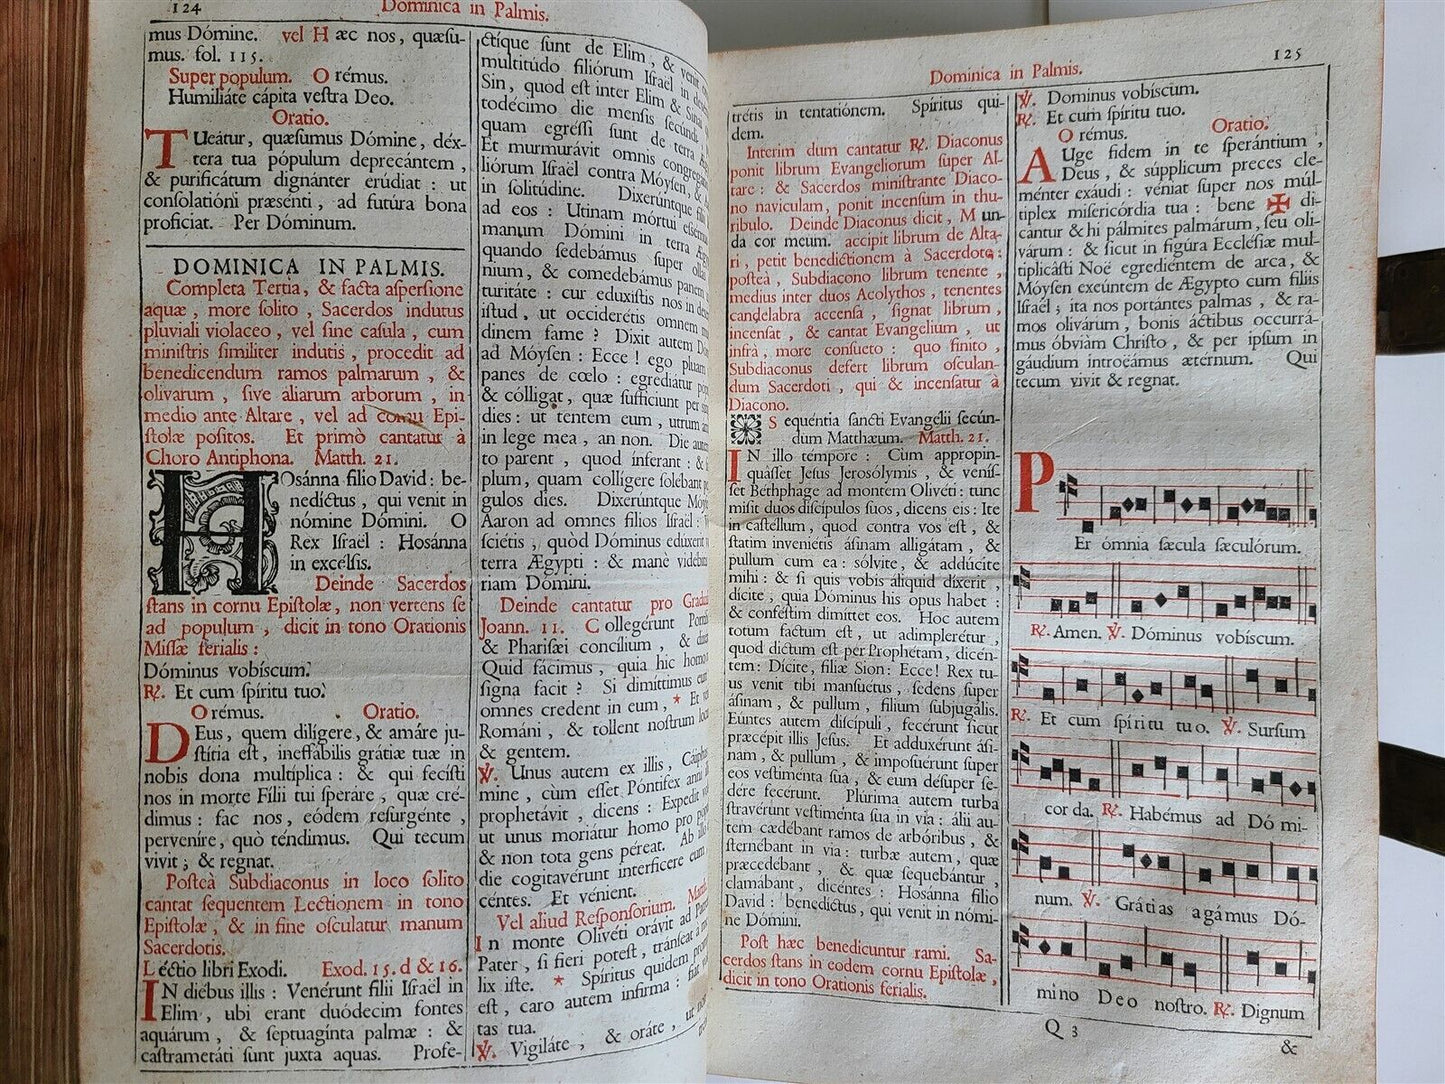 124 Dominica in Palmis.
mus Dómine. vel Hæc nos, quæſu-
mus. fol. 115.
Super populum. Orémus.
Humiliáte cápita veſtra Deo.
Oratio.
TUeátur, quæſumus Dómine, déx-
tera tua pópulum deprecántem,
& purificátum dignánter erúdiat: ut
conſolatióni præſenti, ad futúra bona
proficiat. Per Dóminum.
DOMINICA IN PALMIS.
Completa Tertia, & facta aſperſione
aquæ, more ſolito, Sacerdos indutus
pluviali violaceo, vel ſine caſula, cum
miniſtris ſimiliter indutis, procedit ad
benedicendum ramos palmarum, &
olivarum, ſive aliarum arborum, in
medio ante Altare, vel ad cornu Epi-
ſtolæ poſitos. Et primò cantatur à
Choro Antiphona. Matth. 21.
HOsánna filio David: be-
nedíctus, qui venit in
nómine Dómini. O
Rex Iſraël: Hosánna
in excélſis.
Deinde Sacerdos
ſtans in cornu Epiſtolæ, non vertens ſe
ad populum, dicit in tono Orationis
Miſſæ ferialis:
Dóminus vobíſcum.
℟. Et cum ſpíritu tuo.
Orémus. Oratio.
DEus, quem dilígere, & amáre ju-
ſtítia eſt, ineffábilis grátiæ tuæ in
nobis dona multíplica: & qui fecíſti
nos in morte Fílii tui ſperáre, quæ cré-
dimus: fac nos, eódem reſurgénte,
perveníre, quò téndimus. Qui tecum
vivit, & regnat.
Poſteà Subdiaconus in loco ſolito
cantat ſequentem Lectionem in tono
Epiſtolæ, & in fine oſculatur manum
Sacerdotis.
Léctio libri Exodi. Exod. 15. d & 16.
IN diébus illis: Venérunt filii Iſraël in
Elim, ubi erant duódecim fontes
aquárum, & ſeptuagínta palmæ: &
caſtrametáti ſunt juxta aquas. Profe-
ctique ſunt de Elim, & venit
multitúdo filiórum Iſraël in deſer
Sin, quod eſt inter Elim & Sinai
todécimo die menſis ſecúndi
quam egréſſi ſunt de terra Æg
Et murmurávit omnis congregá
liórum Iſraël contra Móyſen, & A
in ſolitúdine. Dixerúntque filii
ad eos: Utinam mórtui eſſémus
manum Dómini in terra Ægy
quando ſedebámus ſuper ollas
nium, & comedebámus panem
turitáte: cur eduxíſtis nos in deſer
iſtud, ut occiderétis omnem mu
dinem fame? Dixit autem Dóm
ad Móyſen: Ecce! ego pluam
panes de cœlo: egrediátur popu
& cólligat, quæ ſuffíciunt per ſin
dies: ut tentem eum, utrum am
in lege mea, an non. Die autem
to parent, quod ínferant: & ſ
plum, quam collígere ſolébant p
gulos dies. Dixerúntque Moyſ
Aaron ad omnes filios Iſraël: V
ſciétis, quòd Dóminus edúxerit v
terra Ægypti: & manè vidébiti
riam Dómini.
Deinde cantatur pro Gradual
Joann. 11. Collegérunt Pontíf
& Phariſæi concílium, & dixér
Quid fácimus, quia hic homo
ſigna facit? Si dimíttimus eum
omnes credent in eum, * Et v
Románi, & tollent noſtrum locu
& gentem.
℣. Unus autem ex illis, Cáiphas
mine, cùm eſſet Póntifex anni
prophetávit, dicens: Expedit vo
ut unus moriátur homo pro pópu
& non tota gens péreat. Ab illo
die cogitavérunt interfícere eum
céntes. Et vénient.
Vel aliud Reſponſorium. Matth.
In monte Olivéti orávit ad Patre
Pater, ſi fíeri poteſt, tránſeat à m
lix iſte. * Spíritus quidem prom
eſt, caro autem infirma: fiat vo
tas tua.
℣. Vigiláte, & oráte, ut non
Dominica in Palmis. 125
trétis in tentatiónem. Spíritus qui-
dem.
Interim dum cantatur ℟. Diaconus
ponit librum Evangeliorum ſuper Al-
tare: & Sacerdos miniſtrante Diaco-
no naviculam, ponit incenſum in thu-
ribulo. Deinde Diaconus dicit, Mun-
da cor meum. accipit librum de Alta-
ri, petit benedictionem à Sacerdote:
poſteà, Subdiacono librum tenente,
medius inter duos Acolythos, tenentes
candelabra accenſa, ſignat librum,
incenſat, & cantat Evangelium, ut
infrà, more conſueto: quo finito,
Subdiaconus defert librum oſculan-
dum Sacerdoti, qui & incenſatur à
Diacono.
Sequéntia ſancti Evangelii ſecún-
dum Matthæum. Matth. 21.
IN illo témpore: Cùm appropin-
quáſſet Jeſus Jerosólymis, & veníſ-
ſet Béthphage ad montem Olivéti: tunc
miſit duos diſcípulos ſuos, dicens eis: Ite
in caſtéllum, quod contra vos eſt, &
ſtatim inveniétis áſinam alligátam, &
pullum cum ea: sólvite, & addúcite
mihi: & ſi quis vobis áliquid díxerit,
dícite, quia Dóminus his opus habet:
& conféſtim dimíttet eos. Hoc autem
totum factum eſt, ut adimplerétur,
quod dictum eſt per Prophétam, dicén-
tem: Dícite, fíliæ Sion: Ecce! Rex tu-
us venit tibi manſuétus, ſedens ſuper
áſinam, & pullum, fílium ſubjugális.
Eúntes autem diſcípuli, fecérunt ſicut
præcépit illis Jeſus. Et adduxérunt áſi-
nam, & pullum, & impoſuérunt ſuper
eos veſtiménta ſua, & eum déſuper ſe-
dére fecérunt. Plúrima autem turba
ſtravérunt veſtiménta ſua in via: álii au-
tem cædébant ramos de arbóribus, &
ſternébant in via: turbæ autem, quæ
præcedébant, & quæ ſequebántur,
clamábant, dicéntes: Hosánna fílio
David: benedíctus, qui venit in nómi-
ne Dómini.
Poſt hæc benedicuntur rami. Sa-
cerdos ſtans in eodem cornu Epiſtolæ,
dicit in tono Orationis ferialis.
℣. Dominus vobíscum.
℟. Et cum ſpíritu tuo.
Orémus. Oratio.
AUge fidem in te ſperántium,
Deus, & súpplicum preces cle-
ménter exáudi: véniat ſuper nos múl-
tiplex miſericórdia tua: bene ✠ di-
cántur & hi pálmites palmárum, ſeu oli-
várum: & ſicut in figúra Eccléſiæ mul-
tiplicáſti Noë egrediéntem de arca, &
Móyſen exeúntem de Ægypto cum fíliis
Iſraël; ita nos portántes palmas, & ra-
mos olivárum, bonis áctibus occurrá-
mus óbviàm Chriſto, & per ipſum in
gáudium introëámus ætérnum. Qui
tecum vivit & regnat.
PEr ómnia ſæcula ſæculórum.
℟. Amen. ℣. Dóminus vobíscum.
℟. Et cum ſpíritu tuo. ℣. Surſum
cor da. ℟. Habémus ad Dó mi-
num. ℣. Grátias agámus Dó-
mino Deo noſtro. ℟. Dignum
Q 3
&